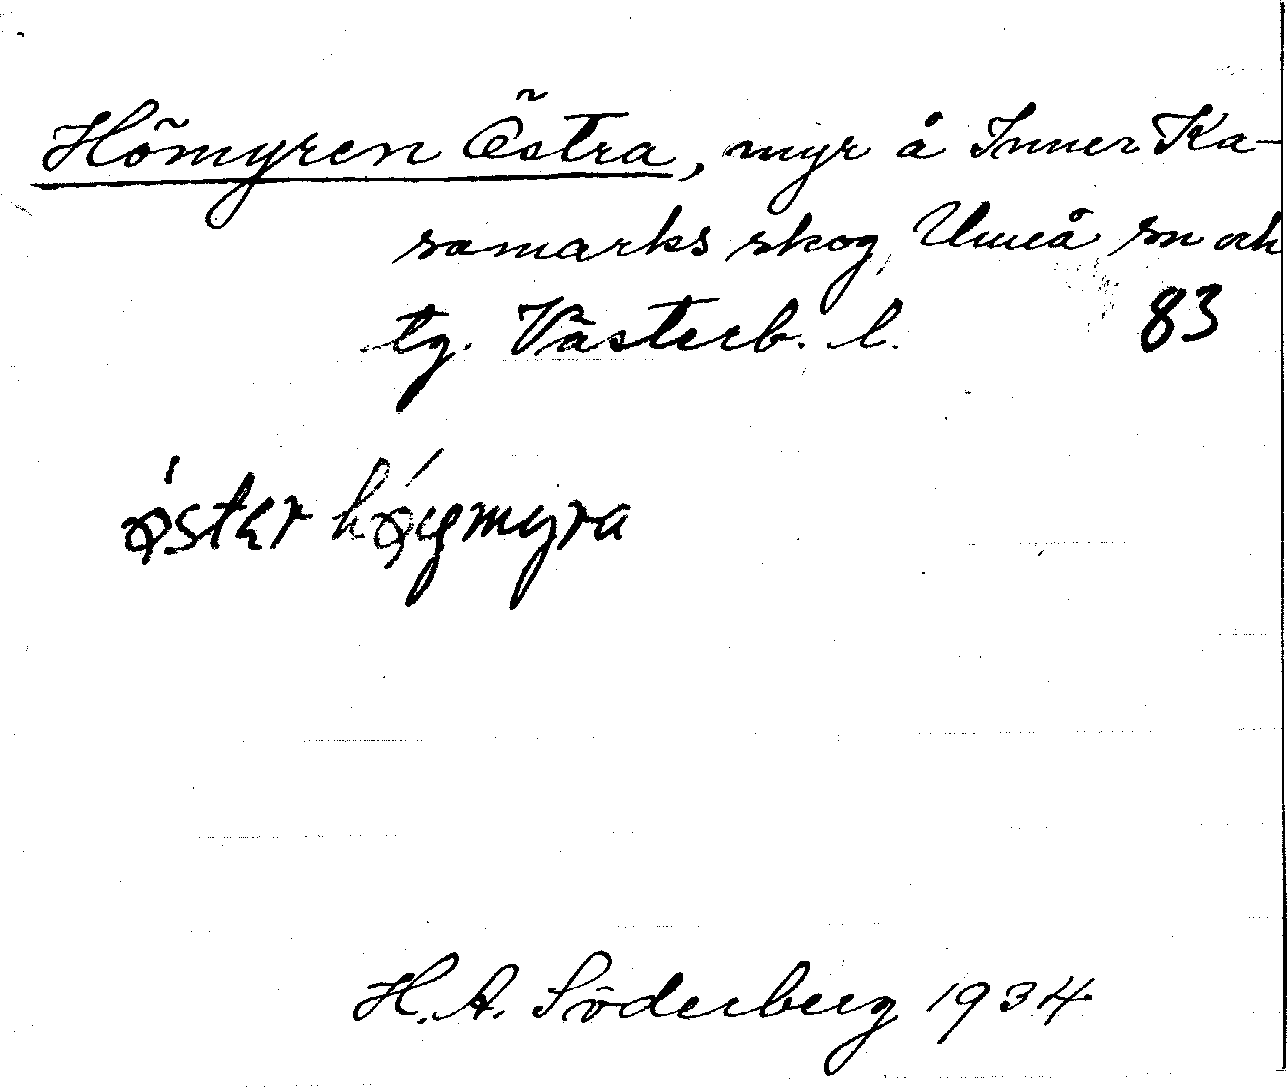 Hömyren Östra, myr å Inner Ka-
samarks skog, Umeå sn och
tg. Västerb. l. 83
øster høgmyra
H. A. Söderberg 1934